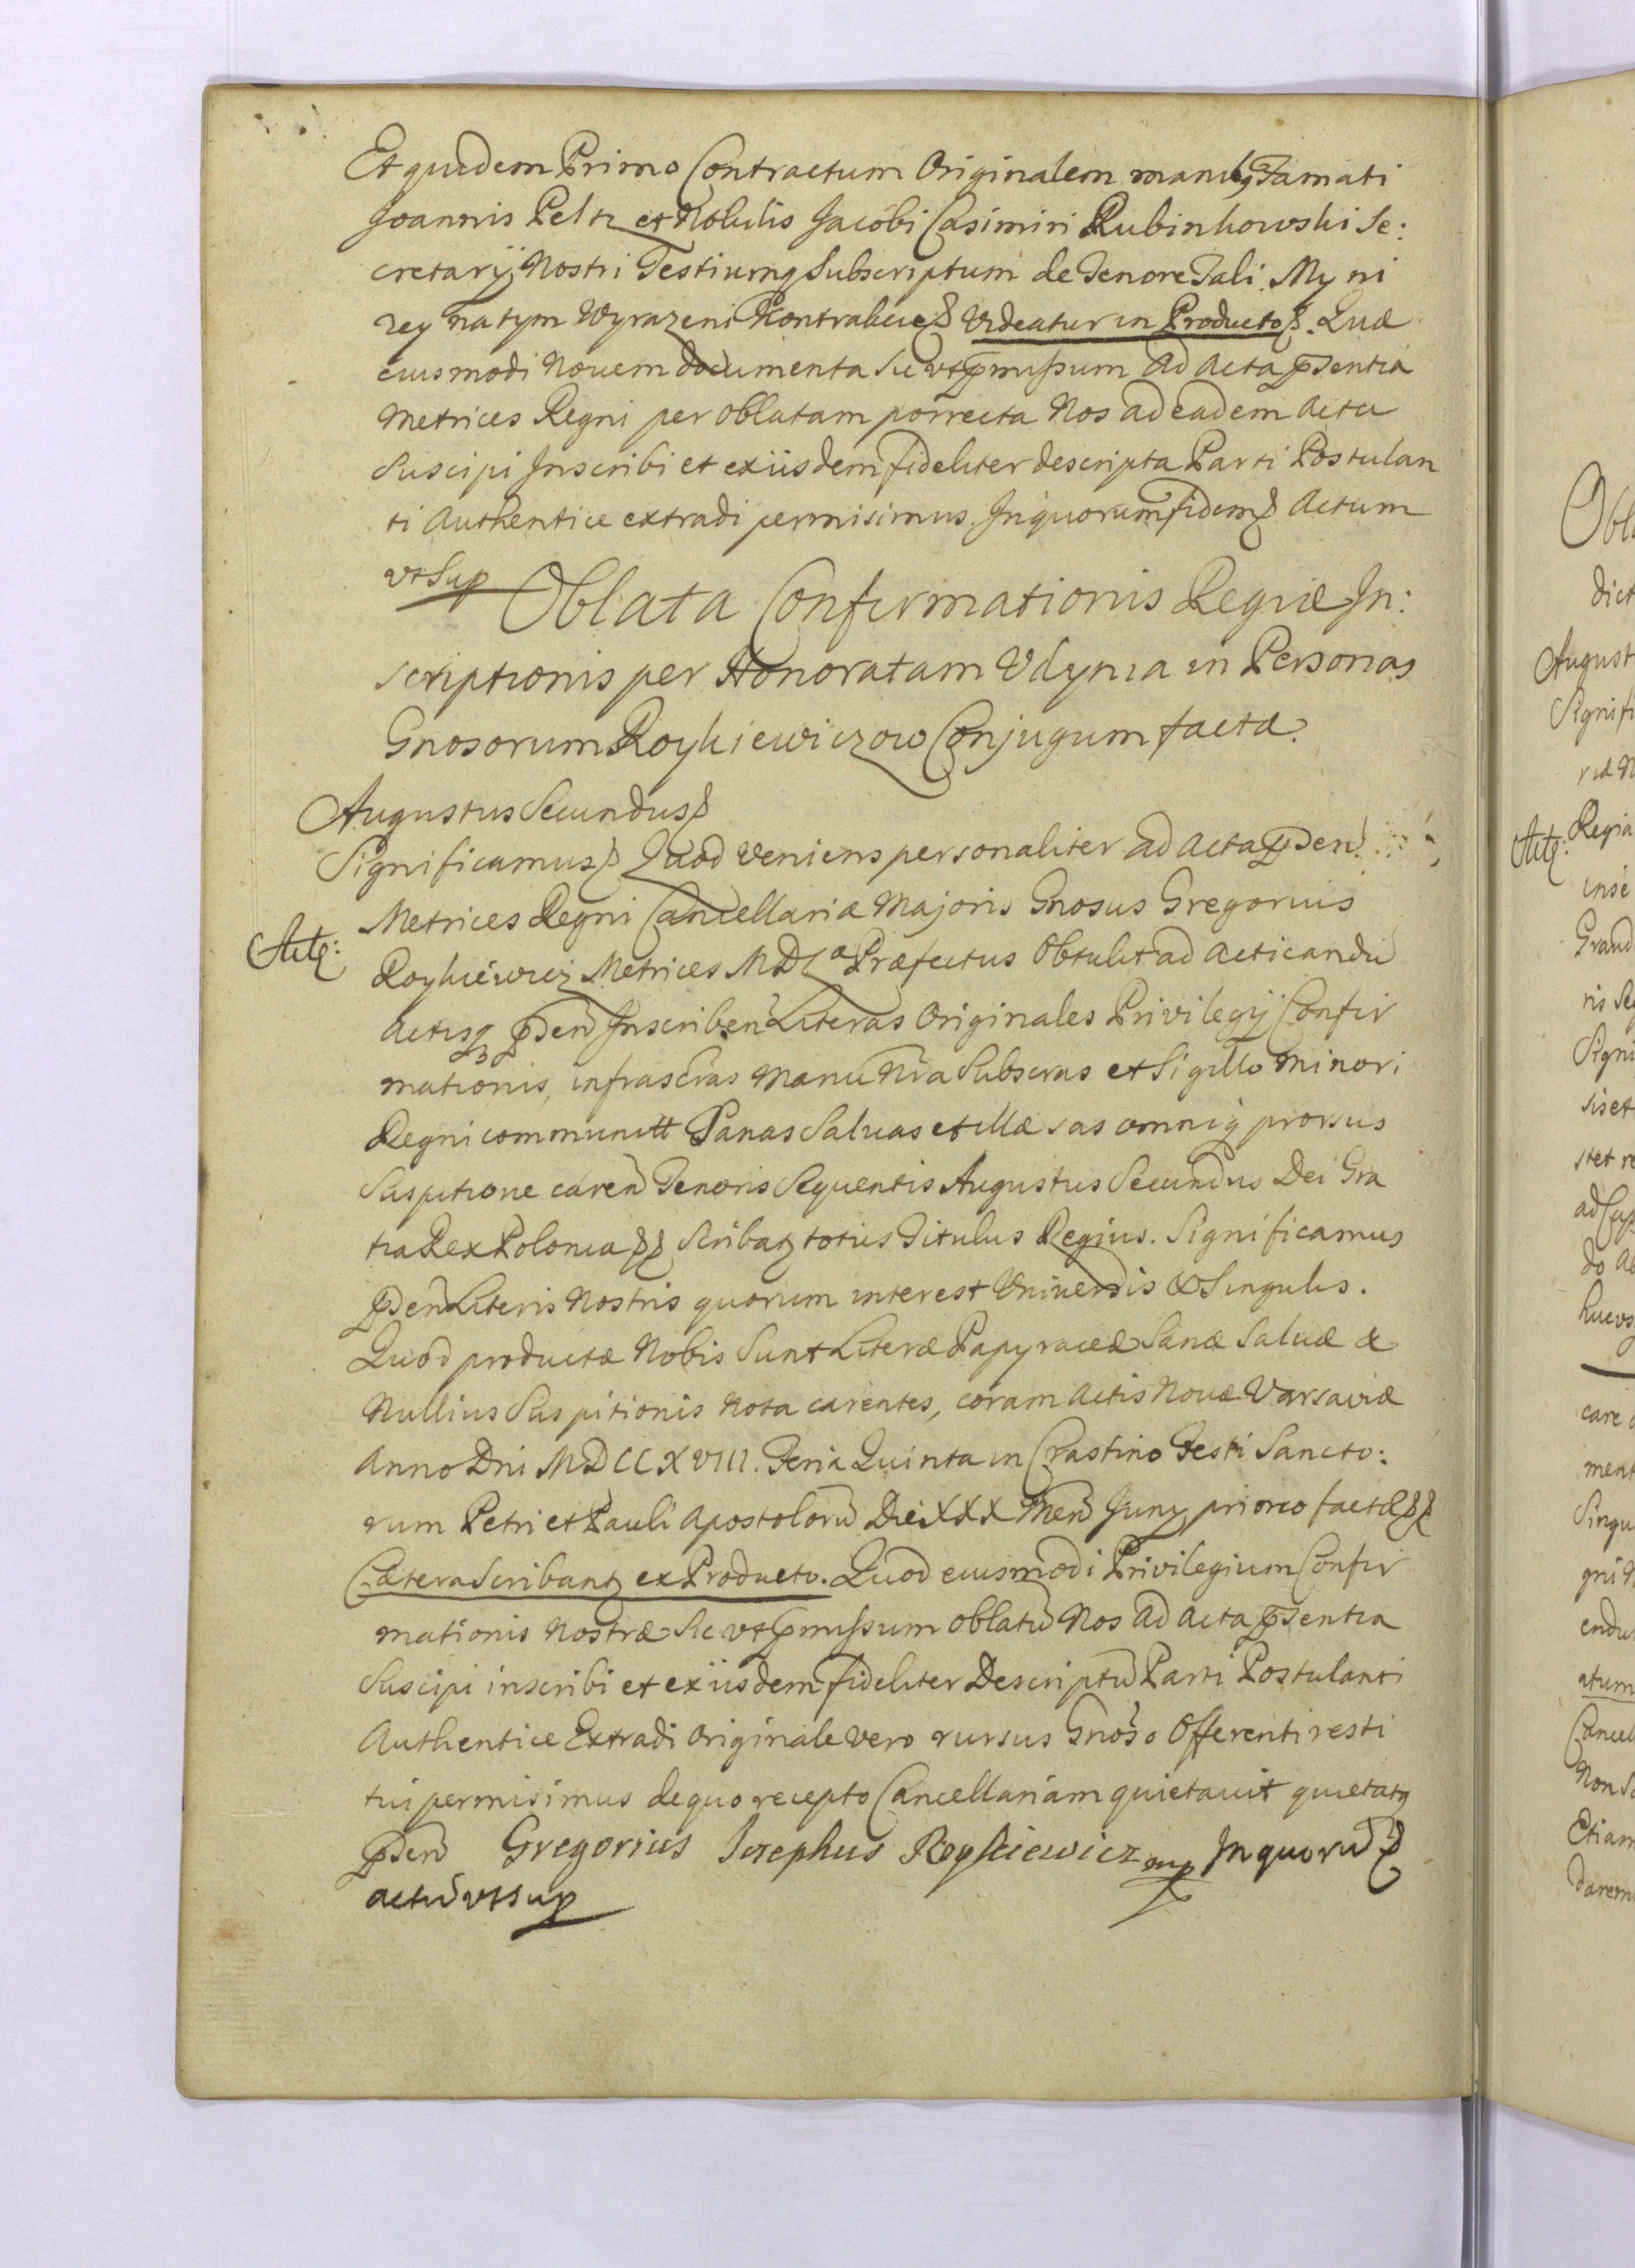 Et quidem Primo Contractum Originalem manibq Famati
Joannis Peltz et Nobilis Jacobi Casimiri Rubinkowski Se:
cretarij Nostri Testiumq Subscriptum de Tenore Tali. My ni
zey na tym Wyrazeni Kontrakcie Videatur in Producto. Quæ
eiusmodi Novem documenta Sic vt pmissum ad acta psentia
Metrices Regni per oblatam porrecta Nos ad eadem acta
Suscipi Inscribi et exiisdem fideliter descripta Parti Postulan
ti Authentice extradi permisimus. In quorum fidem Actum
vt Sup
Oblata Confirmationis Regiæ In:
scriptionis per Honoratam Udynia in Personas
Gnosorum Roykiewiczow Conjugum factæ.
Augustus Secundus
Significamus Quod veniens personaliter ad acta pden
Metrices Regni Cancellariæ Majoris Gnosus Gregorius
Roykiewicz Metrices MDLa Præfectus Obtulit ad acticandū
Actisq pden Inscriben Literas Originales Privilegij Confir
mationis, infrascras Manu Nra Subscras et Sigillo minori
Regni communitt Panas Salvas et illæsas omniq prorsus
Suspitione caren Tenoris Sequentis Augustus Secundus Dei Gra
tia Rex Polonia Scribatz totus Titulus Regius. Significamus
pden Literis Nostris quorum interest Universis & Singulis.
Quod productæ Nobis Sunt Literæ Papyraceæ Sanæ Salvæ &
Nullius Suspitionis Nota carentes, coram actis Novæ Varsaviæ
Anno Dni MDCCXVIII. Feria Quinta in Crastino Festi Sancto:
rum Petri et Pauli Apostolorū Die XXX Men Juny primo factæ
Cætera Scribantz ex Producto. Quod eiusmodi Privilegium Confir
mationis Nostræ Sic vt pmissum oblatū Nos ad acta psentia
Suscipi inscribi et exiisdem fideliter Descriptū Parti Postulanti
Authentice Extradi Originale vero rursus Gnoso Offerenti resti
tui permisimus de quo recepto Cancellariam quietavit quietatq
pden Gregorius Josephus Roykiewicz mp In quorū
actū vt Sup
Actq: